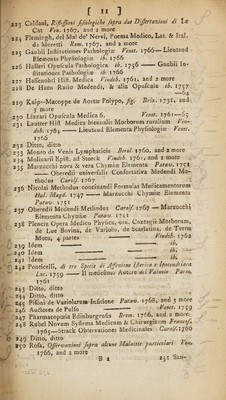 [ 11 ]
223 Caldani, Riflessioni fisiologiche sopra due Dissertazioni di Le
Cat Ven. 1767, and 2 more
224 Flemingh, del Mal de' Nervi, Poema Medico, Lat. & Ital.
da Moretti Rom. 1767, and 2 more
225 Gaubii Institutiones Pathologiæ Venet. 1766—Lieutaud
Elementa Physiologiæ ib. 1766
226 Halleri Opuscula Pathologica ib. 1756 — Gaubii In-
stitutiones Pathologicæ ib. 1766
227 Hassenohrl Hist. Medica Vindob. 1761, and 2 more
228 De Haen Ratio Medendi, & alia Opuscula ib. 1757
—64
229 Knip—Macoppe de Aortæ Polypo, fig. Brix. 1731, and
3 more
230 Lazari Opuscula Medica 6. Venet. 1761—65
231 Lautter Hist. Medica biennalis Morborum ruralium Vin-
dob. 1764 — Lieutaud Elementa Physiologiæ Venet.
1766
232 Ditto, ditto
233 Monro de Venis Lymphaticis Berol. 1760, and 2 more
234 Molinarii Epist. ad Storck Vindob. 1761, and 2 more
235 Marzucchi nova & vera Chymiæ Elementa Patav. 1751
— Oberedii universalis Confortativa Medendi Me-
thodus Carolf. 1767
236 Nicolai Methodus concinnandi Formulas Medicamentorum
Hal. Magd. 1747 — Marzucchi Chymiæ Elementa
Patav. 1751
237 Oberedii Medendi Methodus Carolf. 1767 — Marzucchi
Elementa Chymiæ Patav. 1751
238 Plencis Opera Medico Physica, viz. Contagii Morborum,
de Lue Bovina, de Variolis, de Scarlatina, de Terræ
Motu, 4 partes Vindob. 1762
239 Idem ib.
240 Idem ib.
241 Idem ib.
242 Ponticelli, di tre Specie di Affezioni Isterica e Ipocondriaca
Luc. 1759 — Il medesimo Autore dei Vainolo Parm.
1761
243 Ditto, ditto
244 Ditto, ditto
245 Pisoni de Variolarum Insitione Patav. 1768, and 3 more
246 Authores de Pulso Venet. 1759
247 Pharmacopœia Edinburgensis Brem. 1766, and 2 more.
248 Rubel Novum Systema Medicum & Chirurgicum Francof.
1765—Strack Observationes Medicinales Carolf. 1766
249 Ditto, ditto
250 Rosa, Osservazioni sopra alcune Malattie particolari Ven.
1766, and 2 more
B 2 251 San-